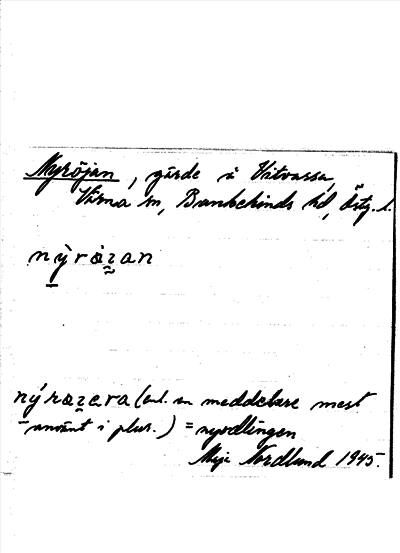 Nyröjan, gärde i Vitvassa,
Värna sn, Bankekinds hd, Östg. l.
nỳrȯʐan
nýrazera (enl. en meddelare mest
använt i plur.) = nyodlingen
Nordlund 1945.